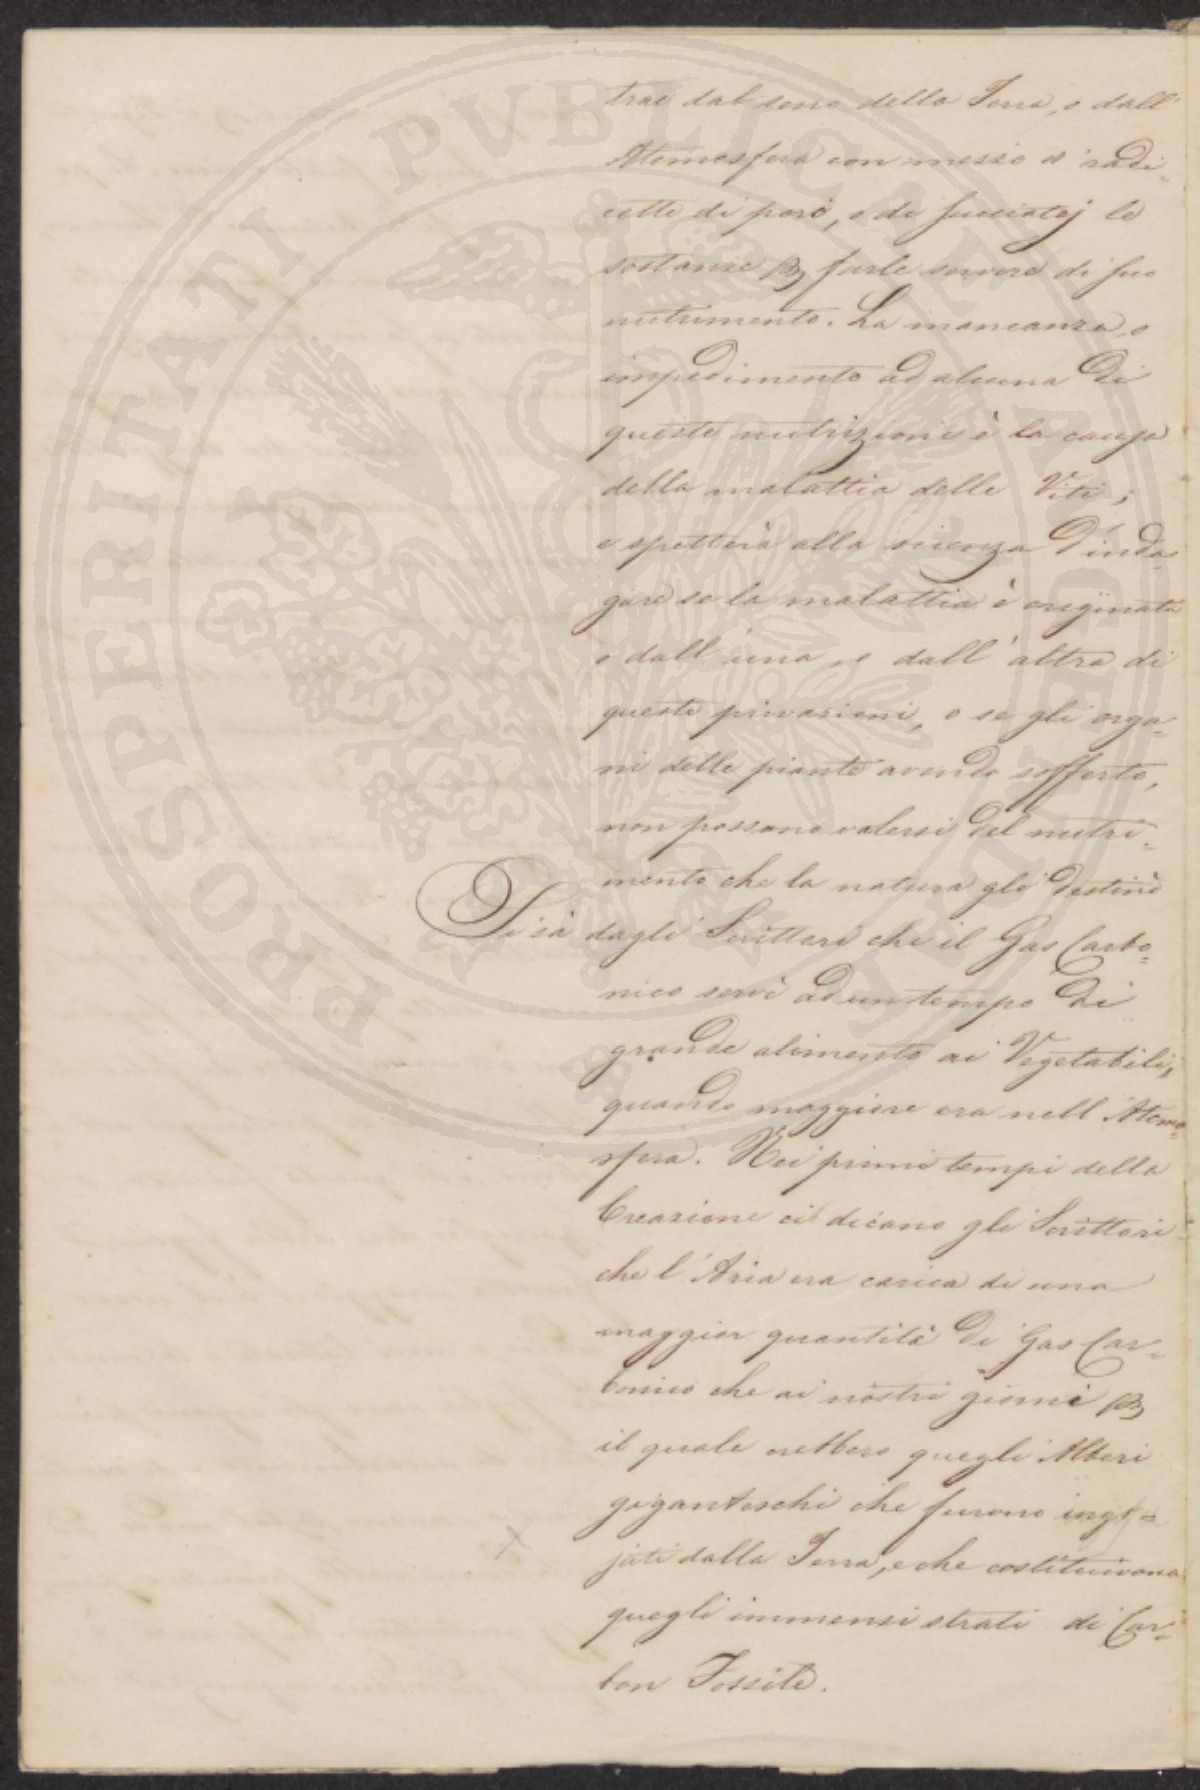 trae dal seno della Terra, o dall'
Atmosfera con mezzo o' radi=
cette di pori, o di succiatoj le
sostanze per farle servire di suo
nutrimento. La mancanza, o
impedimento ad alcuna di
queste nutrizioni è la causa
della malattia delle Viti;
e spetterà alla scienza d'inda=
gare se la malattia è originata
o dall'una, o dall'altra di
queste privazioni, o se gli orga=
ni delle piante avendo sofferto,
non possano valersi del nutri=
mento che la natura gli destinò
Si sà dagli Scrittori che il Gas Carbo=
nico servì ad un tempo di
grande alimento ai Vegetabili,
quando maggiore era nell'Atmo=
sfera. Nei primi tempi della
Creazione ci dicono gli Scrittori
che l'Aria era carica di una
maggior quantità di Gas Car=
bonico che ai nostri giorni per
il quale crebbero quegli Alberi
giganteschi che furono ingo=
jati dalla Terra, e che costituivano
quegli immensi strati di Car=
bon Fossile.
PROSPERITATI PUBLICAE AUGENDAE